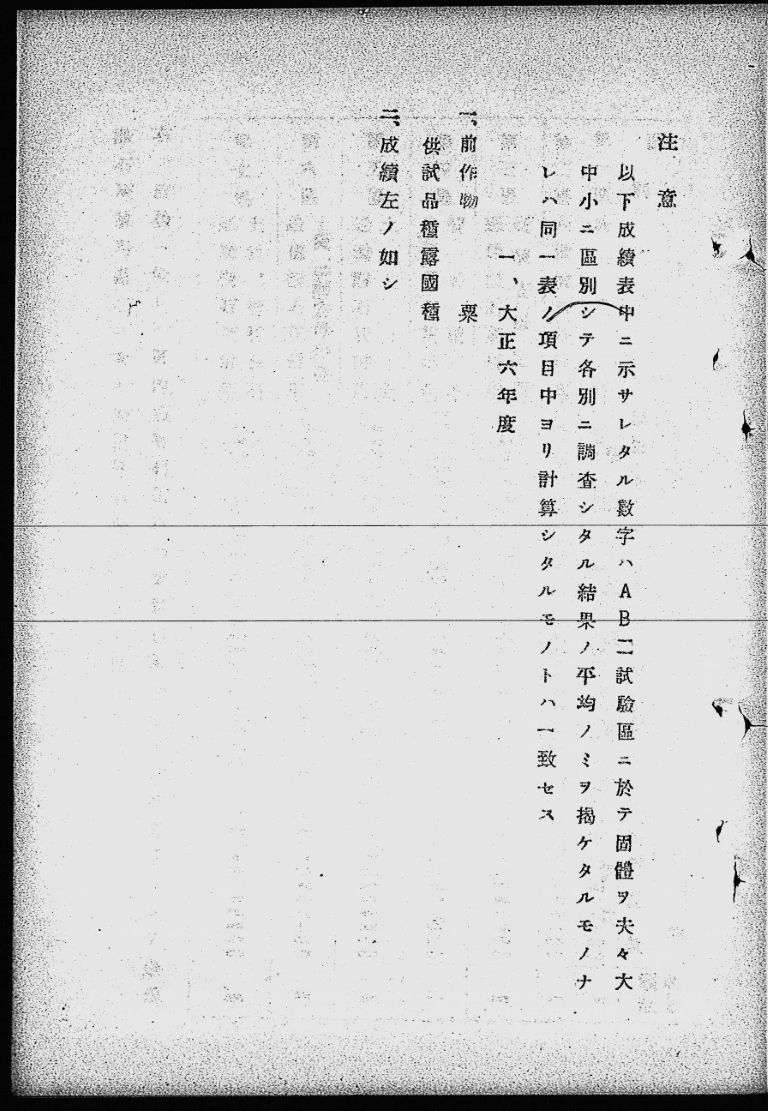 注意
以下成績表中ニ示サレタル數字ハAB二試驗區ニ於テ固體ヲ夫々大
中小ニ區別シテ各別ニ調査シタル結果ノ平均ノミヲ揭ケタルモノナ
レハ同一表ノ項目中ヨリ計算シタルモノトハ一致セス
一、大正六年度
一、前作物 粟
供試品種露國種
二、成績左ノ如シ